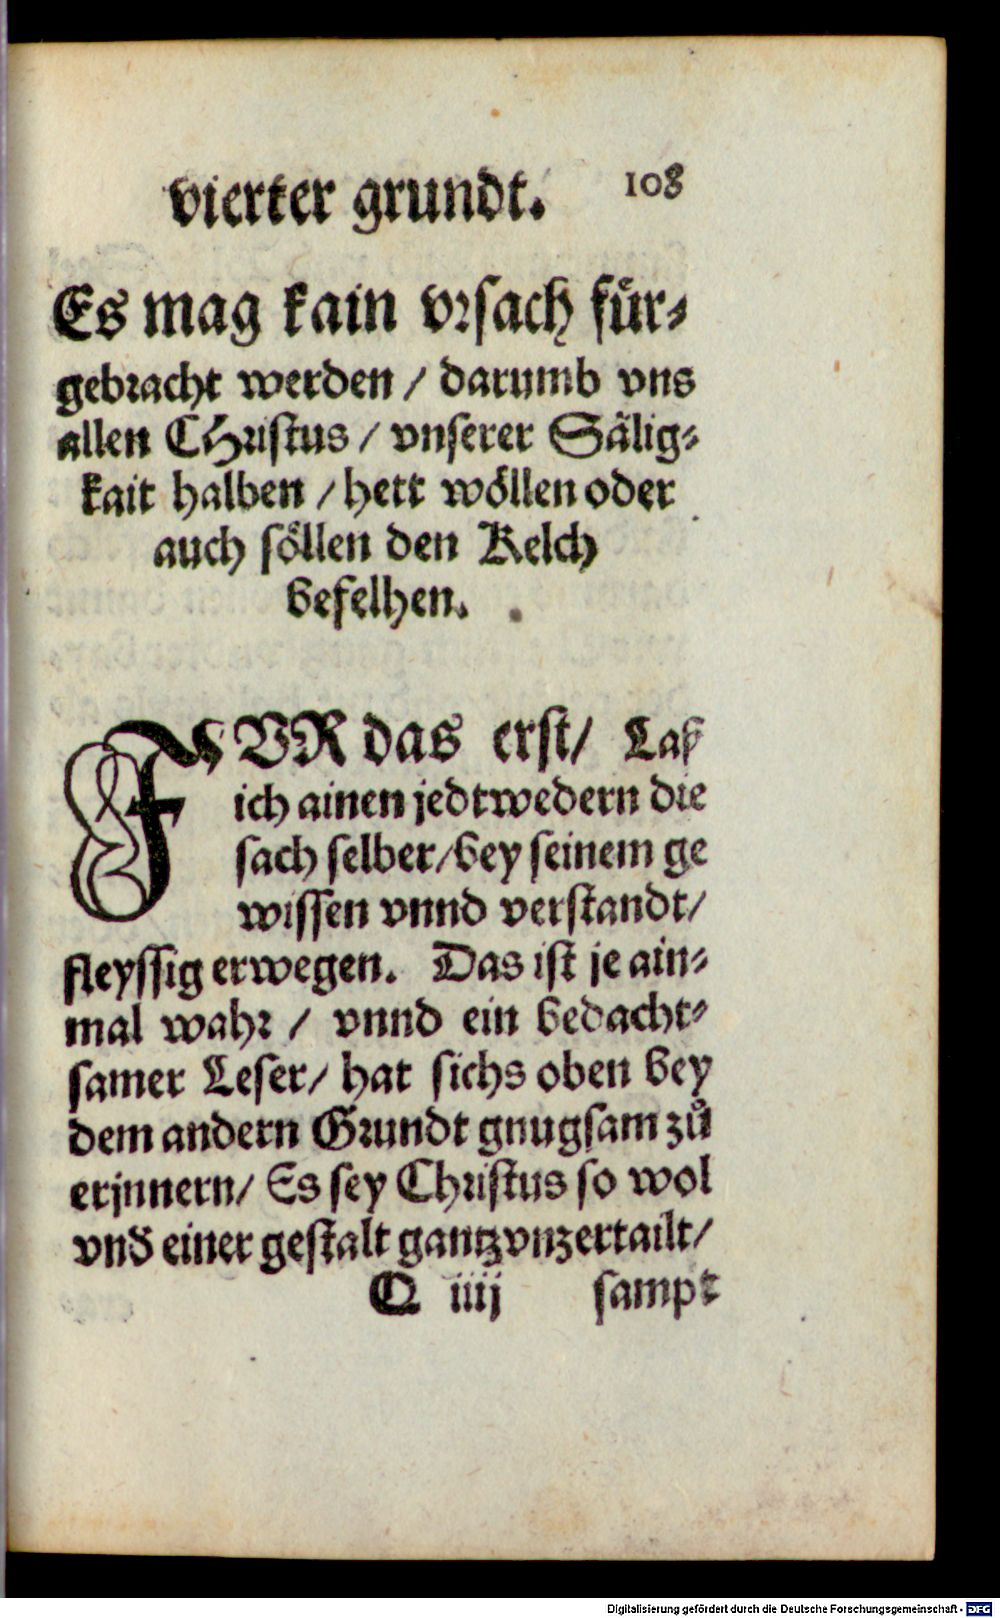 vierter grundt. 108
Es mag kain vrsach fuͤr⸗
gebracht werden / darumb vns
allen CHristus / vnserer Saͤlig⸗
kait halben / hett woͤllen oder
auch soͤllen den Kelch
befelhen.
FVR das erst / Laß
ich ainen jedtwedern die
sach selber / bey seinem ge
wissen vnnd verstandt /
fleyssig erwegen. Das ist je ain⸗
mal wahr / vnnd ein bedacht⸗
samer Leser / hat sichs oben bey
dem andern Grundt gnugsam zuͦ
erjnnern / Es sey Christus so wol
vnd einer gestalt gantz vnzertailt /
Q iiij sampt
Digitalisierung gefördert durch die Deutsche Forschungsgemeinschaft - DFG